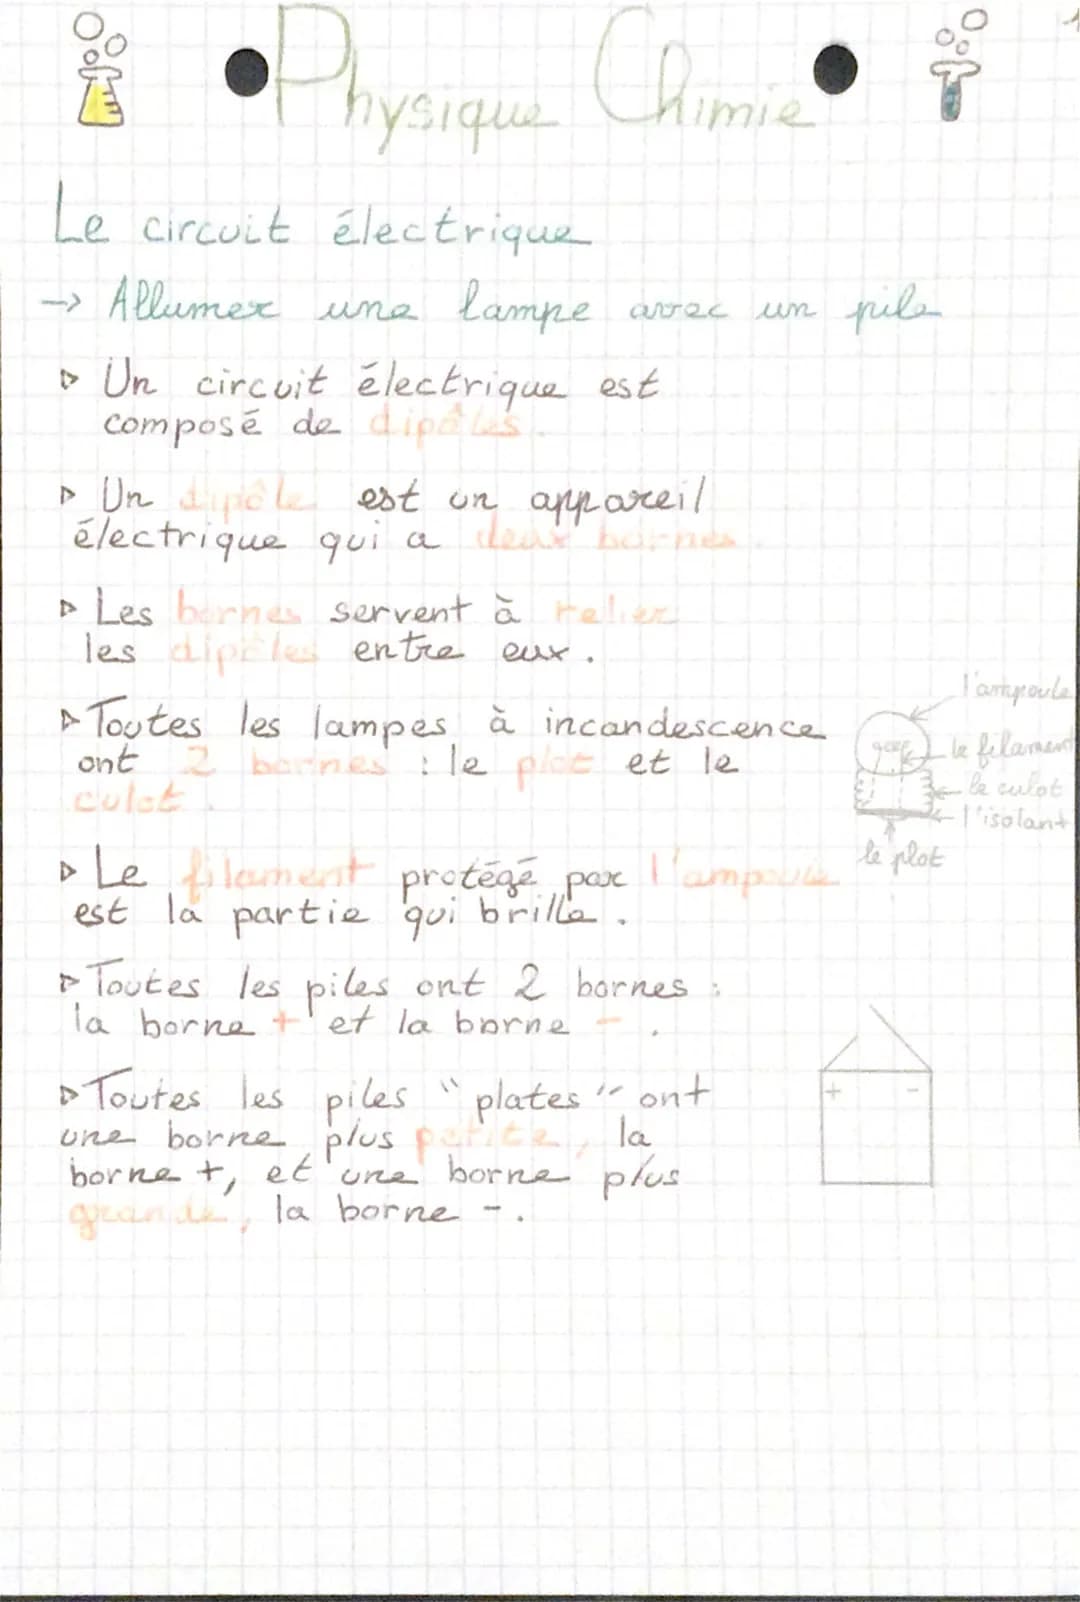 1
Physique Chimie
Le circuit électrique
→ Allumer une lampe avec un pile
▷ Un circuit électrique est
composé de dipôles.
▷ Un dipôle est un appareil
électrique qui a deux bornes.
▷ Les bornes servent à relier
les dipôles entre eux.
▷ Toutes les lampes à incandescence
ont 2 bornes : le plot et le
culot.
l'ampoule
le filament
le culot
l'isolant
le plot
▷ Le filament protégé par l'ampoule
est la partie qui brille.
▷ Toutes les piles ont 2 bornes :
la borne + et la borne - .
▷ Toutes les piles "plates" ont
une borne plus petite, la
borne +, et une borne plus
grande, la borne -.
+ -